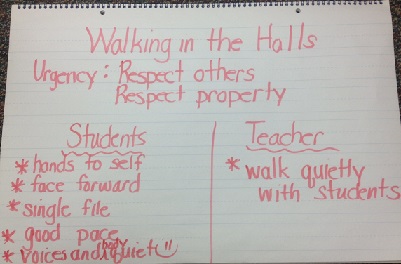 Walking in the Halls
Urgency: Respect others
Respect property
Students
* hands to self
* face forward
* single file
* good pace
* voices and body quiet
Teacher
* walk quietly
with students